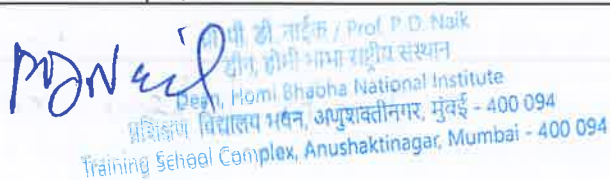 PDNaik
प्रो पी. डी. नाईक / Prof. P. D. Naik
डीन, होमी भाभा राष्ट्रीय संस्थान
Dean, Homi Bhabha National Institute
प्रशिक्षण विद्यालय भवन, अणुशक्तीनगर, मुंबई - 400 094
Training School Complex, Anushaktinagar, Mumbai - 400 094